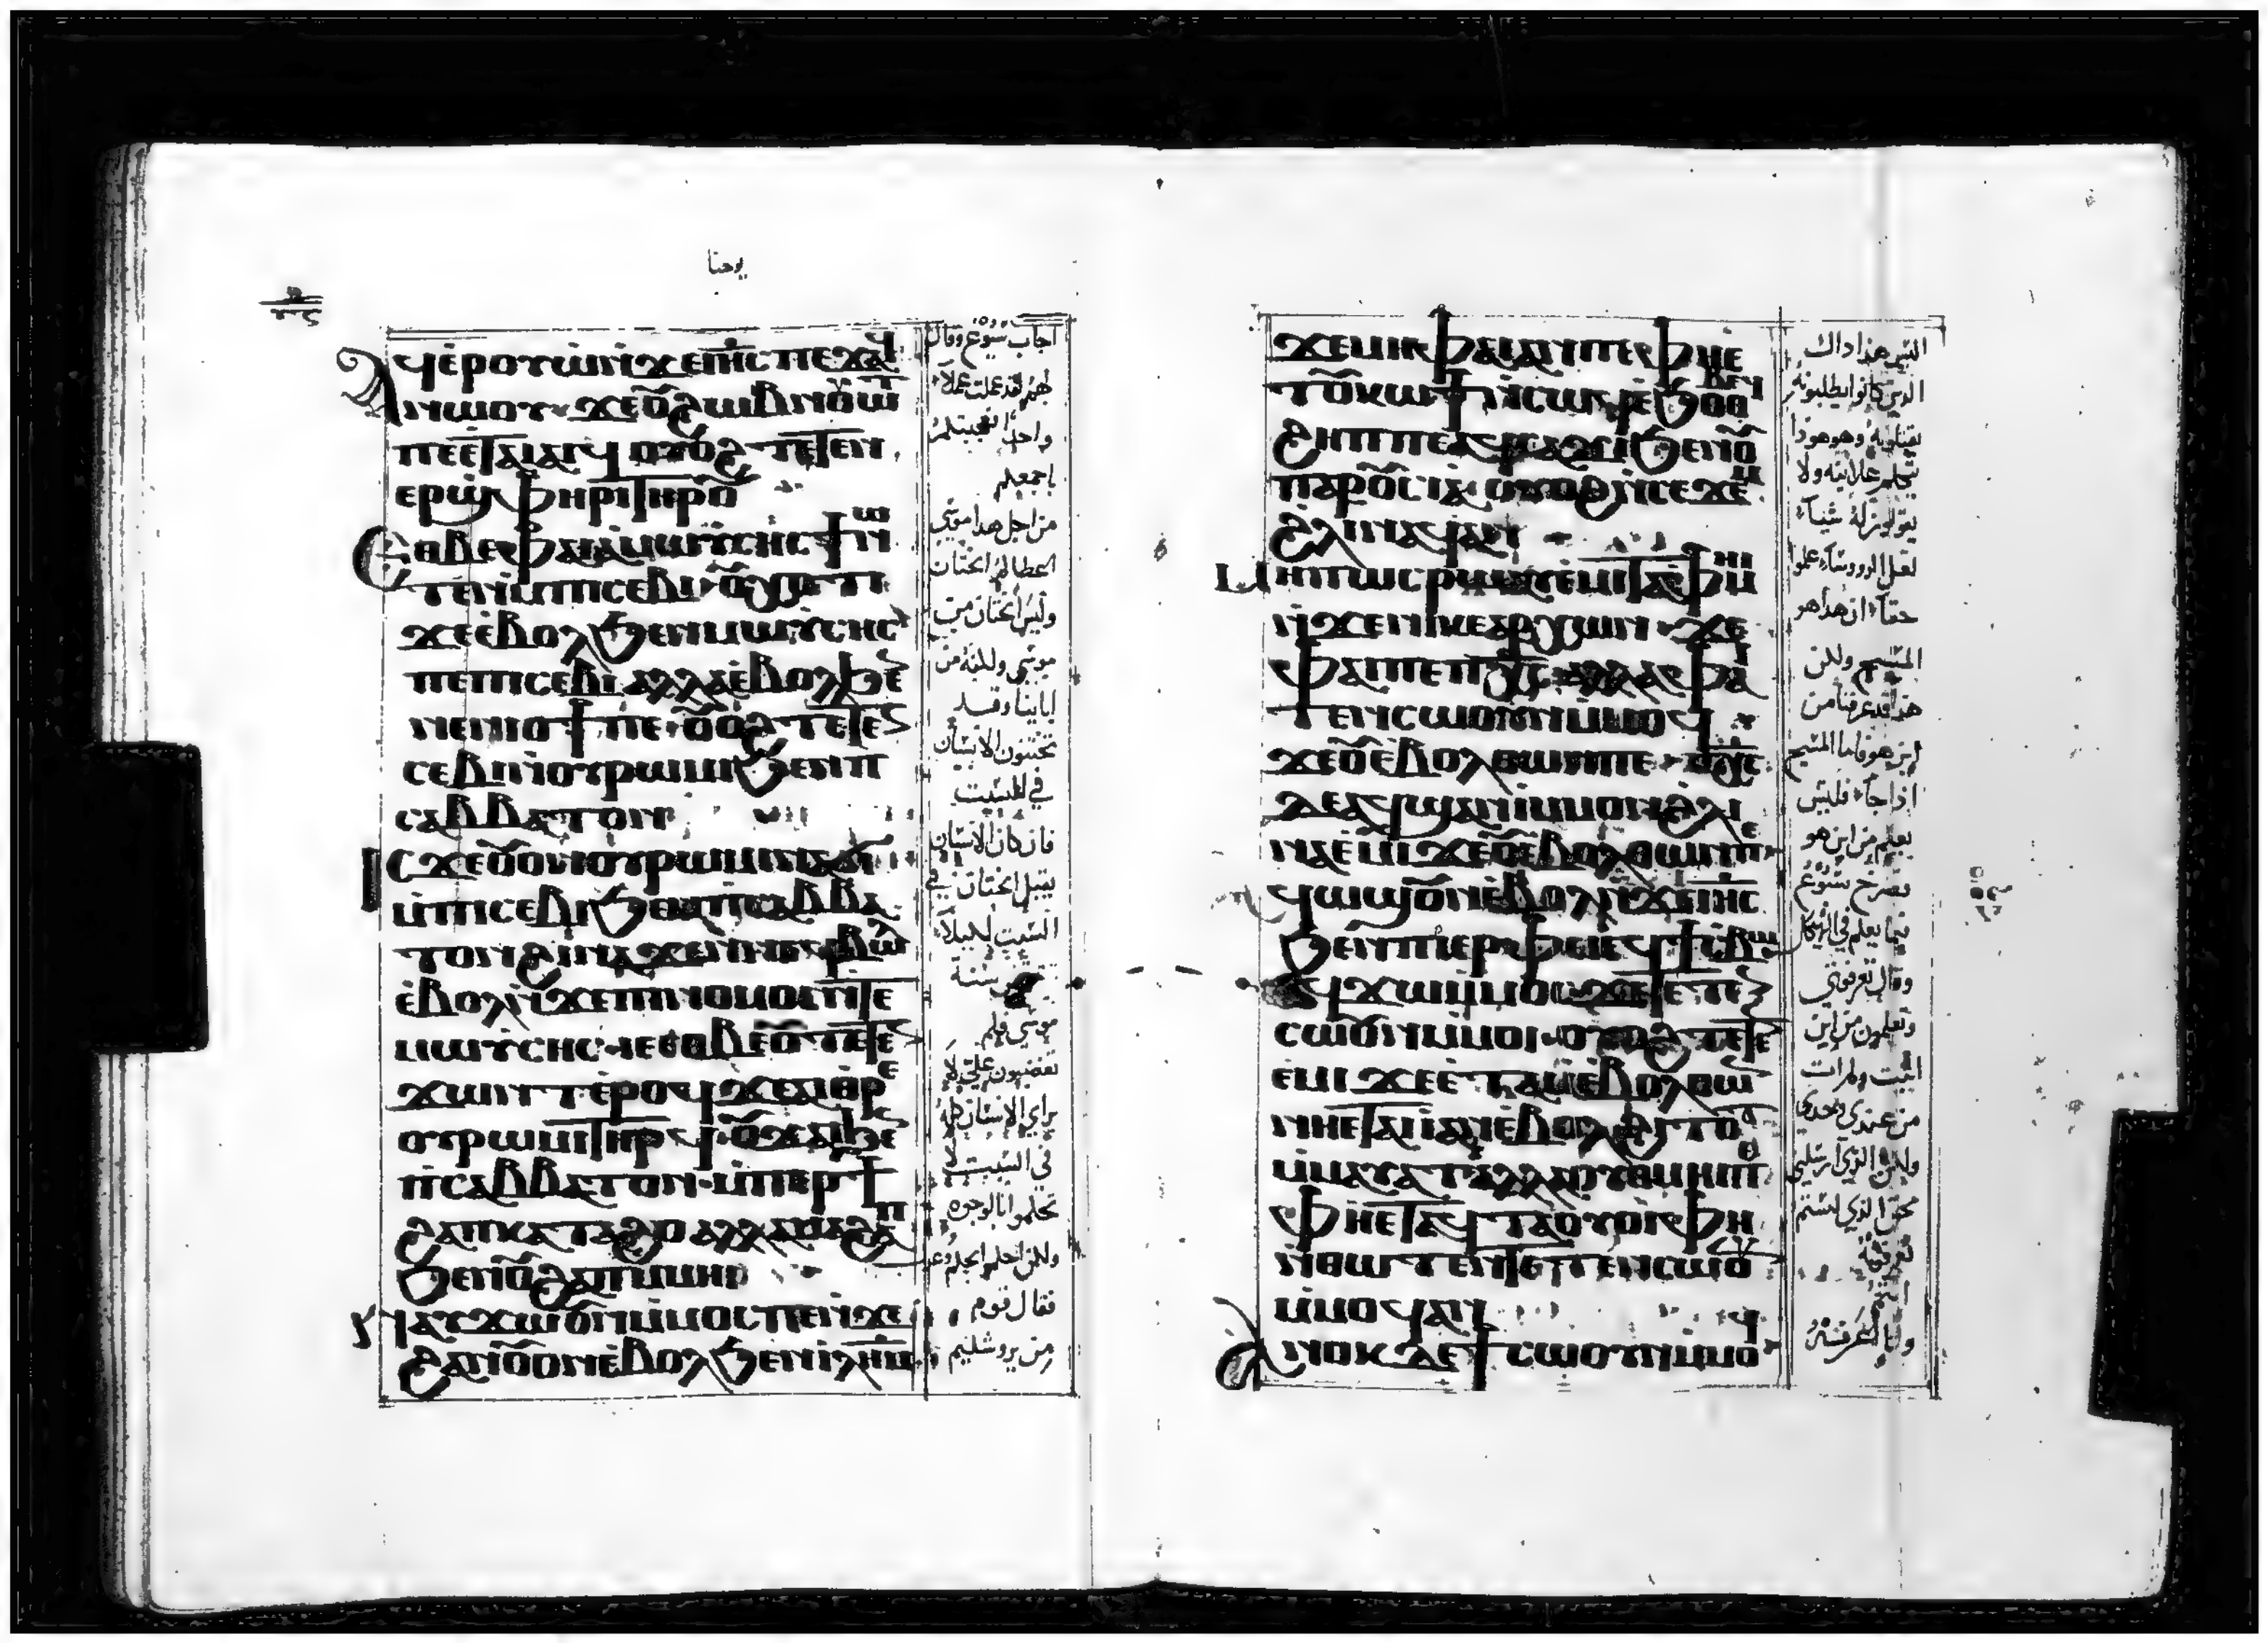 يوحنا
ⲁϥⲉⲣⲟⲩⲱⲛϫⲉⲓⲏⲥ ⲡⲉϫⲁϥ
ⲛⲱⲟⲩ ϫⲉⲟⲩϩⲱⲃ ⲛⲟⲩⲱⲧ
ⲡⲉⲉⲧⲁⲓⲁⲓϥ ⲟⲩⲟϩ ⲧⲉⲧⲉⲛ
ⲉⲣϣⲫⲏⲣⲓⲧⲏⲣⲟⲩ
ⲉⲑⲃⲉⲫⲁⲓⲁⲙⲱⲩⲥⲏⲥϯⲛⲱ
ⲧⲉⲛⲙⲡⲓⲥⲉⲃⲓ ⲟⲩⲭ ⲟⲧⲓ
ϫⲉⲉⲃⲟⲗϧⲉⲛⲙⲱⲩⲥⲏⲥ
ⲡⲉⲡⲓⲥⲉⲃⲓ ⲁⲗⲗⲁⲉⲃⲟⲗϧⲉ
ⲛⲉⲛⲓⲟϯⲡⲉ ⲟⲩⲟϩ ⲧⲉⲧⲉ
ⲥⲉⲃⲓⲛⲟⲩⲣⲱⲙⲓϧⲉⲛⲡ
ⲥⲁⲃⲃⲁⲧⲟⲛ
ⲓⲥϫⲉⲟⲩⲟⲛⲟⲩⲣⲱⲙⲓⲛⲁϭⲓ
ⲙⲡⲓⲥⲉⲃⲓϧⲉⲛⲡⲥⲁⲃⲃⲁ
ⲧⲟⲛ ϩⲓⲛⲁϫⲉⲛⲛⲉϥⲃⲱⲗ
ⲉⲃⲟⲗⲛϫⲉⲡⲓⲛⲟⲙⲟⲥⲛⲧⲉ
ⲙⲱⲩⲥⲏⲥ ⲓⲉⲉⲑⲃⲉⲟⲩ ⲧⲉⲧⲉ
ϫⲱⲛⲧⲉⲣⲟⲓ ϫⲉⲁⲓⲑⲣⲉ
ⲟⲩⲣⲱⲙⲓⲧⲏⲣϥ ⲟⲩϫⲁⲓϧⲉ
ⲡⲥⲁⲃⲃⲁⲧⲟⲛ ⲙⲡⲉⲣϯ
ϩⲁⲡⲕⲁⲧⲁϩⲟ ⲁⲗⲗⲁⲙⲁϩⲁⲡ
ϧⲉⲛⲟⲩϩⲁⲡⲙⲙⲏⲓ
ⲛⲁⲩϫⲱⲟⲩⲛⲙⲙⲟⲥⲡⲉⲛϫⲉ
ϩⲁⲛⲟⲩⲟⲛⲉⲃⲟⲗϧⲉⲛⲓⲗⲏⲙ
اجاب يسوع وقال
لهم قد عملت عملا
واحدا فتعجبتم
اجمعكم
من اجل هذا موسى
اعطاكم الختان
وليس الختان من
موسى ولكنه من
ابائنا وقد
تختنون الانسان
في السبت
فان كان الانسان
يقبل الختان في
السبت لكيلا
سنة
موسى فلم
تغضبون علي لا
براي الانسان كله
في السبت لا
تحكموا بالوجوه
ولكن احكموا حكم عدل
فقال قوم
من يروشليم
ϫⲉⲙⲏⲫⲁⲓⲁⲛⲡⲉⲫⲏⲉ
ⲧⲟⲩⲕⲱϯⲛⲥⲱϥ ⲉϧⲟⲑⲃⲉϥ
ϩⲏⲡⲡⲉϥⲥⲁϫⲓϧⲉⲛⲟⲩ
ⲡⲁⲣⲟⲩⲥⲓⲁ ⲟⲩⲟϩ ⲛⲥⲉϫⲉ
ϩⲗⲓⲛⲁϥⲁⲛ
ⲙⲏⲡⲱⲥ ⲣⲱⲁⲩⲉⲙⲓⲧⲁⲫⲙⲏⲓ
ⲛϫⲉⲛⲓⲕⲉⲁⲣⲭⲱⲛ ϫⲉ
ⲫⲁⲓⲡⲉⲡⲭⲥ ⲁⲗⲗⲁ ⲫⲁⲓ
ⲧⲉⲛⲥⲱⲟⲩⲛⲙⲙⲟϥ
ϫⲉⲟⲩⲉⲃⲟⲗⲑⲱⲛⲡⲉ ⲡⲭⲥ
ⲇⲉⲁϥϣⲁⲛⲓⲙⲙⲟⲛϩⲗⲓ
ⲛⲁⲉⲙⲓ ϫⲉⲟⲩⲉⲃⲟⲗⲑⲱⲛⲡⲉ
ⲁϥⲱϣⲟⲩⲛⲉⲃⲟⲗⲛϫⲉⲓⲏⲥ
ϧⲉⲛⲡⲓⲉⲣⲫⲉⲓⲉϥϯⲥⲃⲱ
ⲉϥϫⲱⲙⲙⲟⲥ ϫⲉⲧⲉⲧⲉ
ⲥⲱⲟⲩⲛⲙⲙⲟⲓ ⲟⲩⲟϩ ⲧⲉⲧⲉ
ⲉⲙⲓ ϫⲉⲉⲧⲁⲓⲉⲃⲟⲗⲑⲱ
ⲛⲏⲉⲧⲁⲓⲁⲛⲉⲃⲟⲗϩⲓⲧⲟⲧ
ⲙⲙⲁⲩⲁⲧ ⲁⲗⲗⲁⲟⲩⲑⲙⲏⲓⲡⲉ
ⲫⲏⲉⲧⲁϥⲧⲁⲟⲩⲟⲓ ⲫⲏ
ⲛⲑⲱⲧⲉⲛⲉⲧⲉⲧⲉⲛⲥⲱⲟⲩ
ⲙⲙⲟϥⲁⲛ
ⲁⲛⲟⲕⲇⲉϯⲥⲱⲟⲩⲛⲙⲙⲟϥ
اليس هذا ذاك
الذي كانوا يطلبونه
يقتلوه وهو هوذا
يتكلم علانية ولا
يقولون له شيئا
لعل الرووسا علموا
حقا ان هذا هو
المسيح ولكن
هذا قد عرفنا من
اين هو فاما المسيح
اذا جا فليس
يعلم من اين هو
فصرخ يسوع
فيما يعلم في الهيكل
وقال تعرفوني
وتعلمون من اين
اتيت ولم ات
من عندي وحدي
ولكن الذي ارسلني
محق الذي لستم
تعرفونه
وانا اعرفه